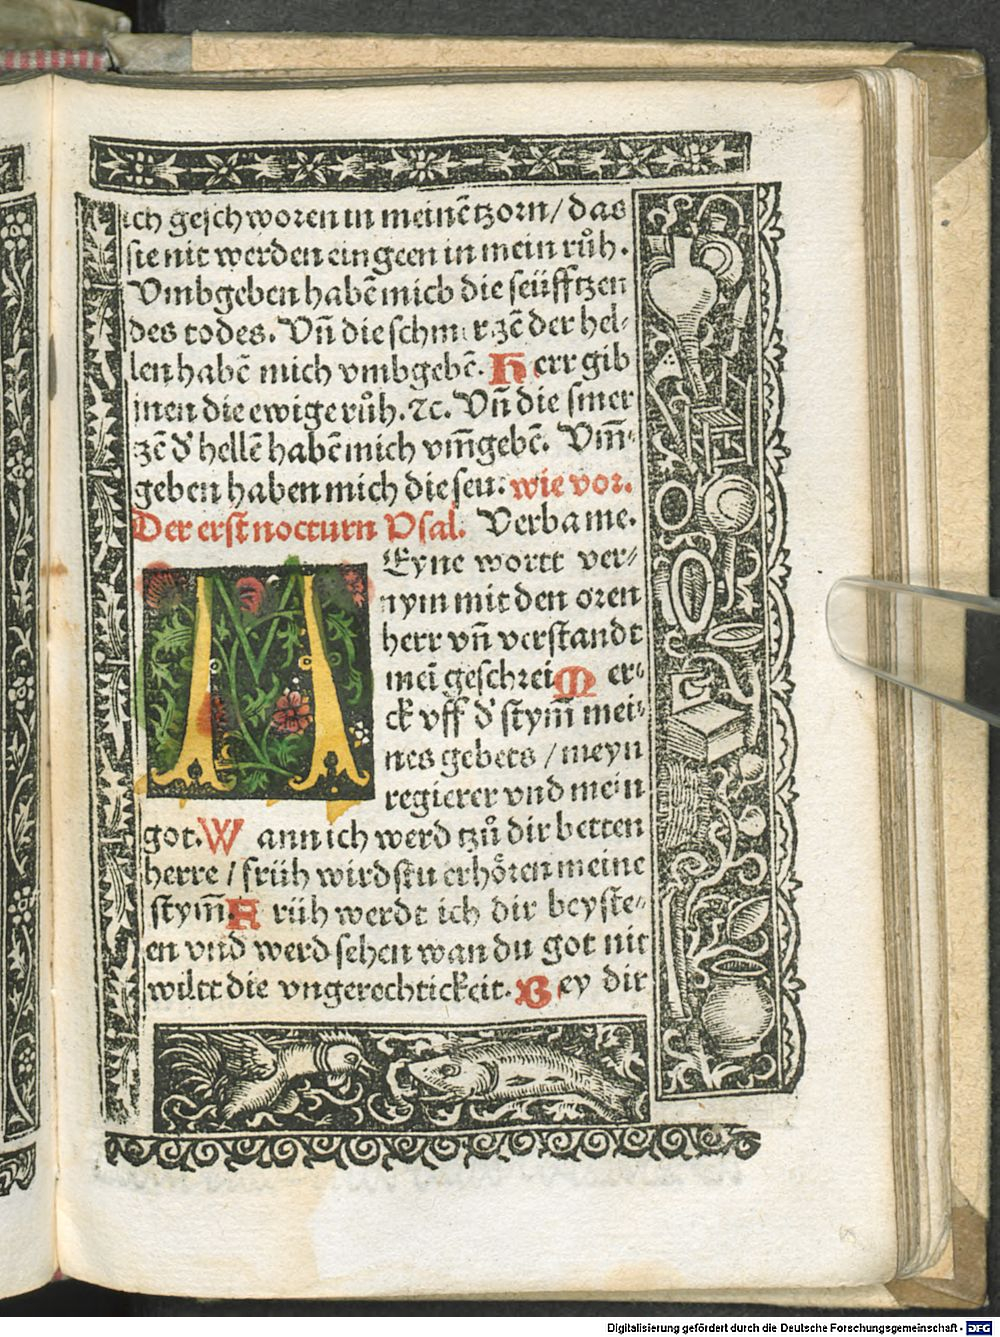 ich geschworen in meinē tzorn / das
sie nit werden ein geen in mein růh.
Vmbgeben habē mich die seüfftzen
des todes. Vñ die schmerzē der hel⸗
len habē mich vmbgebē. Herr gib
inen die ewige růh. ⁊c. Vñ die smer
zē d' hellē habē mich vm̄gebē. Vm̄⸗
geben haben mich die seu: wie vor.
Der erst nocturn Psal. Verba me.
MEyne wortt ver⸗
nym mit den oren
herr vñ verstandt
meī geschrei Mer⸗
ck vff d' stym̄ mei⸗
nes gebets / meyn
regierer vnd mein
got. Wann ich werd tzů dir betten
herre / früh wirdstu erhoͤren meine
stym̄. Früh werdt ich dir beyste⸗
en vnd werd sehen wan du got nit
wiltt die vngerechtickeit. Bey dir
Digitalisierung gefördert durch die Deutsche Forschungsgemeinschaft - DFG